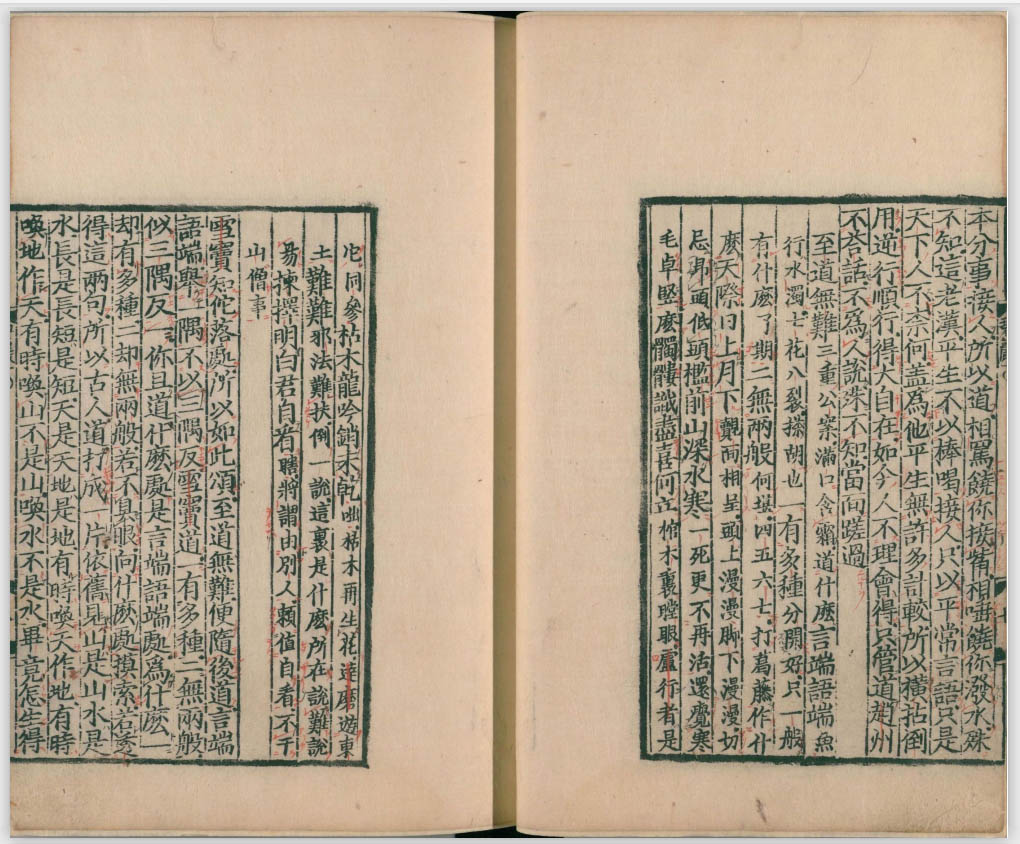 本分事接人所以道相罵饒你接觜相唾饒你潑水殊
不知這老漢平生不以棒喝接人只以平常言語只是
天下人不柰何盖為他平生無許多計較所以橫拈倒
用逆行順行得大自在如今人不理會得只管道趙州
不荅話不為人說殊不知當面蹉過
至道無難三重公案滿口含霜道什麽言端語端魚
行水濁七花八裂搽胡也一有多種分開好只一般
有什麽了期二無兩般何堪四五六七打葛藤作什
麽天際日上月下覿面相呈頭上漫漫脚下漫漫切
忌昂頭低頭檻前山深水寒一死更不再活還覺寒
毛卓竪麽髑髏識盡喜何立棺木裏瞠眼盧行者是
佗同參枯木龍吟銷未乾咄枯木再生花達磨遊東
土難難邪法難扶倒一說這裏是什麽所在說難說
昜揀擇明白君自看瞎將謂由別人賴值自看不干
山僧事
雪竇知佗落處所以如此頌至道無難便隨後道言端
語端舉一隅不以三隅反雪竇道一有多種二無兩般
似三隅反一你且道什麽處是言端語端處為什麽一
却有多種二却無兩般若不具眼向什麽處摸索若透
得這兩句所以古人道打成一片依舊見山是山水是
水長是長短是短天是天地是地有時喚天作地有時
喚地作天有時喚山不是山喚水不是水畢竟怎生得